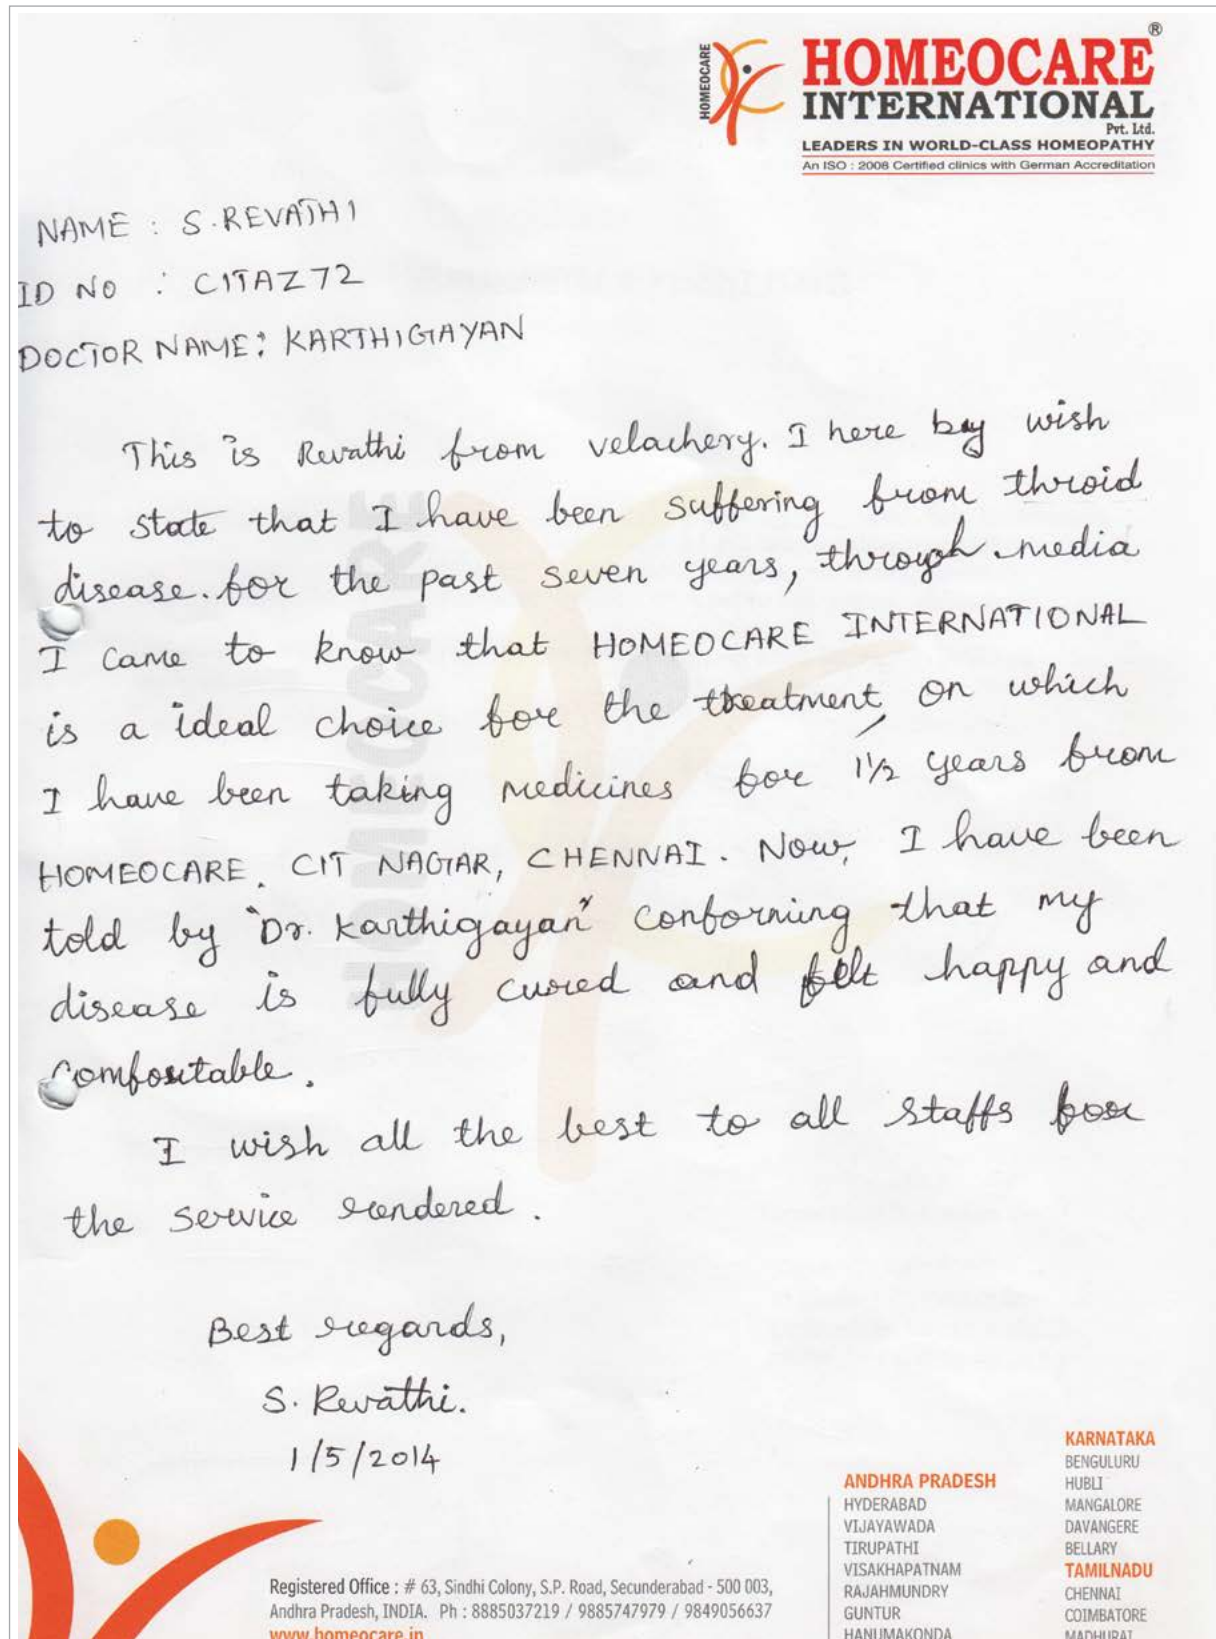 HOMEOCARE
HOMEOCARE®
INTERNATIONAL
Pvt. Ltd.
LEADERS IN WORLD-CLASS HOMEOPATHY
An ISO : 2008 Certified clinics with German Accreditation
NAME : S.REVATHI
ID NO : CITAZ72
DOCTOR NAME: KARTHIGAYAN
This is Revathi from velachery. I here by wish
to state that I have been suffering from throid
disease. for the past seven years, through media
I came to know that HOMEOCARE INTERNATIONAL
is a ideal choice for the treatment, on which
I have been taking medicines for 1½ years from
HOMEOCARE, CIT NAGAR, CHENNAI. Now, I have been
told by "Dr. Karthigayan" conforning that my
disease is fully cured and felt happy and
comfortable.
I wish all the best to all staffs for
the service rendered.
Best regards,
S. Revathi.
1/5/2014
HOMEOCARE
Registered Office : # 63, Sindhi Colony, S.P. Road, Secunderabad - 500 003,
Andhra Pradesh, INDIA. Ph : 8885037219 / 9885747979 / 9849056637
www.homeocare.in
ANDHRA PRADESH
HYDERABAD
VIJAYAWADA
TIRUPATHI
VISAKHAPATNAM
RAJAHMUNDRY
GUNTUR
HANUMAKONDA
KARNATAKA
BENGULURU
HUBLI
MANGALORE
DAVANGERE
BELLARY
TAMILNADU
CHENNAI
COIMBATORE
MADHURAI